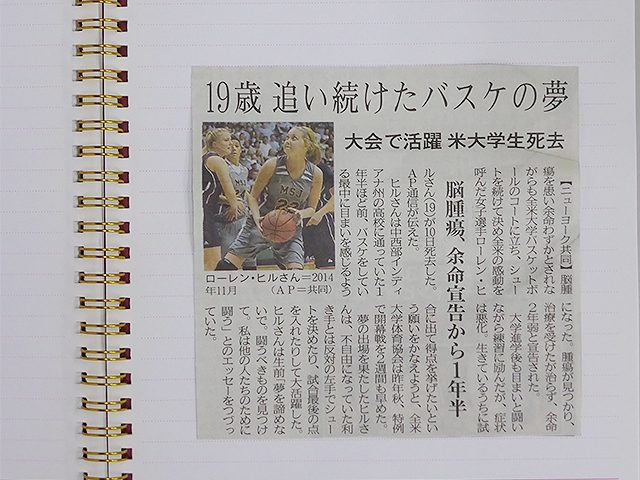 19歳 追い続けたバスケの夢
大会で活躍 米大学生死去
脳腫瘍、余命宣告から1年半
【ニューヨーク共同】脳腫
瘍を患い余命わずかとされな
がらも全米大学バスケットボ
ールのコートに立ち、シュー
トを続けて決め全米の感動を
呼んだ女子選手ローレン・ヒ
ルさん(19)が10日死去した。
AP通信が伝えた。
ヒルさんは中西部インディ
アナ州の高校に通っていた1
年半ほど前、バスケをしてい
る最中に目まいを感じるよう
になった。腫瘍が見つかり、
治療を受けたが治らず、余命
2年弱と宣告された。
大学進学後も目まいと闘い
ながら練習に励んだが、症状
は悪化。生きているうちに試
合に出て得点を挙げたいとい
う願いをかなえようと、全米
大学体育協会は昨年秋、特例
で開幕戦を2週間も早めた。
夢の出場を果たしたヒルさ
んは、不自由になっていた利
き手とは反対の左手でシュー
トを決めたり、試合最後の点
を入れたりして大活躍した。
ヒルさんは生前「夢を諦めな
いで。闘うべきものを見つけ
て。私は他の人たちのために
闘う」とのエッセーをつづっ
ていた。
MSJ
22
ローレン・ヒルさん=2014
年11月 (AP=共同)